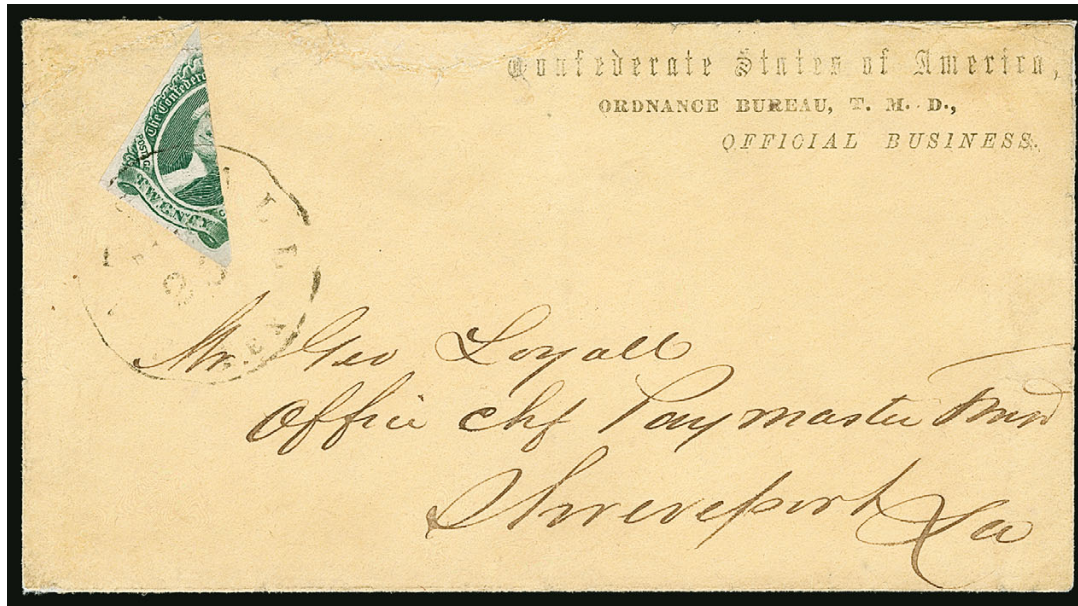 Confederate States of America,
ORDNANCE BUREAU, T. M. D.,
OFFICIAL BUSINESS.
The Confederate
POSTAG
TWENTY
LL
TEX
Mr. Geo Loyall
Office chf Paymaster
Shreveport La